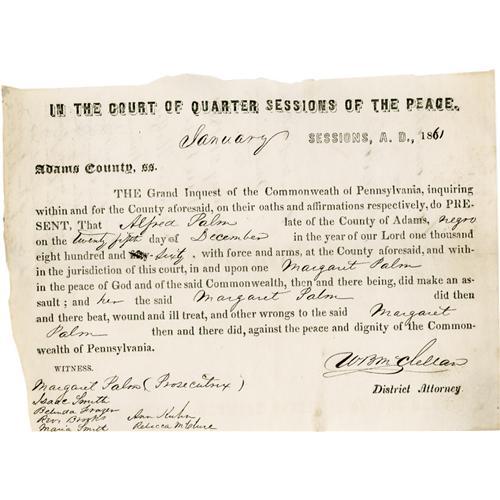 IN THE COURT OF QUARTER SESSIONS OF THE PEACE.
January SESSIONS, A. D., 1861
Adams County, ss.
THE Grand Inquest of the Commonwealth of Pennsylvania, inquiring
within and for the County aforesaid, on their oaths and affirmations respectively, do PRE-
SENT, That Alfred Palm late of the County of Adams, negro
on the twenty fifth day of December in the year of our Lord one thousand
eight hundred and sixty, with force and arms, at the County aforesaid, and with-
in the jurisdiction of this court, in and upon one Margaret Palm
in the peace of God and of the said Commonwealth, then and there being, did make an as-
sault; and her the said Margaret Palm did then
and there beat, wound and ill treat, and other wrongs to the said Margaret
Palm then and there did, against the peace and dignity of the Common-
wealth of Pennsylvania.
WITNESS.
WB McClellan
District Attorney.
Margaret Palm (Prosecutrix)
Isaac Smith
Belinda Frazer
Rev. Brooks Ann Kuhn
Maria Smith Rebecca McClure